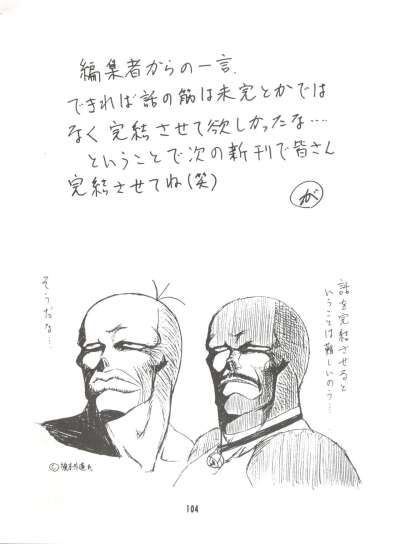 編集者からの一言.
できれば話の筋は未完とかでは
なく完結させて欲しかったな….
ということで次の新刊で皆さん
完結させてね(笑)
が
話を完結させると
いうことは難しいのう…
そうだな…
104